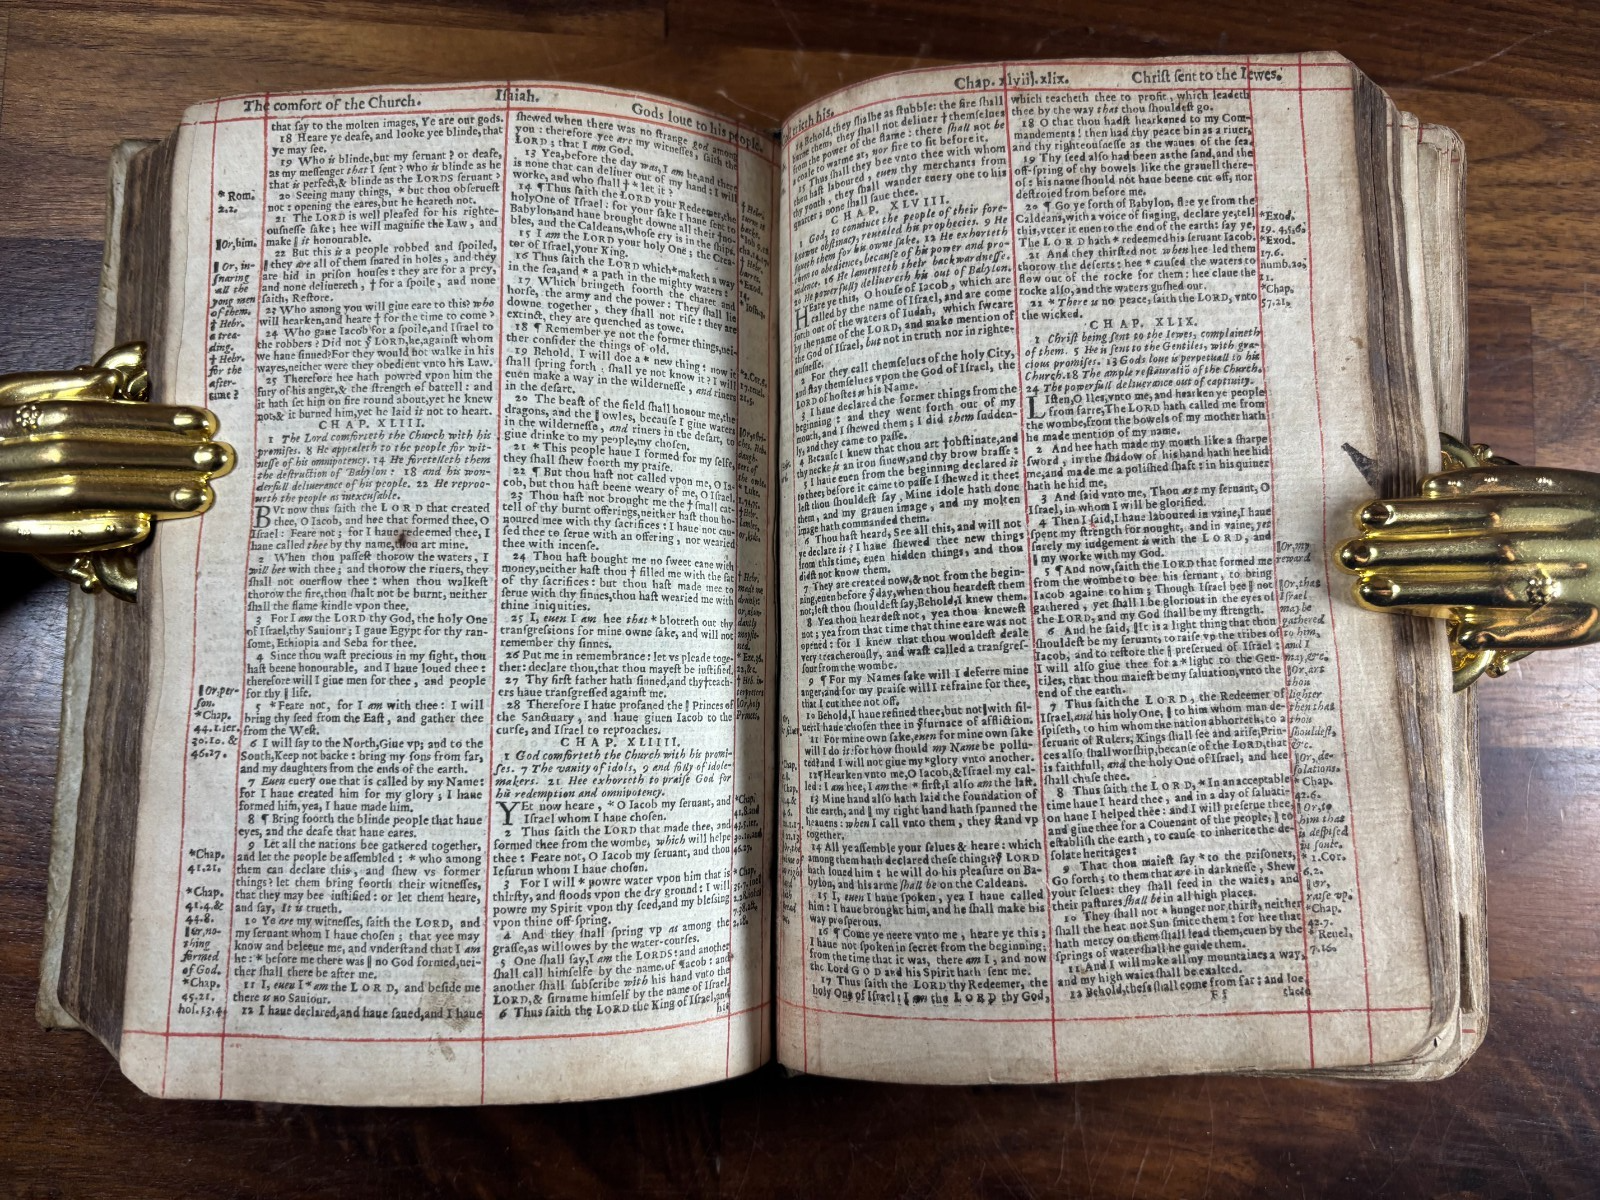 The comfort of the Church.
Iſaiah.
Gods loue to his people.
that ſay to the molten images, Ye are our gods.
18 Heare ye deafe, and looke yee blinde, that
ye may ſee.
19 Who is blinde, but my ſeruant? or deafe,
as my meſſenger that I ſent? who is blinde as he
that is perfect, & blinde as the LORDS ſeruant?
20 Seeing many things, * but thou obſerueſt
not: opening the eares, but he heareth not.
21 The LORD is well pleaſed for his righte-
ouſneſſe ſake; hee will magnifie the Law, and
make ‖ it honourable.
22 But this is a people robbed and ſpoiled,
‖ they are all of them ſnared in holes, and they
are hid in priſon houſes: they are for a prey,
and none deliuereth, † for a ſpoile, and none
ſaith, Reſtore.
23 Who among you will giue eare to this? who
will hearken, and heare † for the time to come?
24 Who gaue Iacob for a ſpoile, and Iſrael to
the robbers? Did not ẙ LORD, he, againſt whom
we haue ſinned? For they would not walke in his
wayes, neither were they obedient vnto his Law.
25 Therefore hee hath powred vpon him the
fury of his anger, & the ſtrength of battell: and
it hath ſet him on fire round about, yet he knew
not; & it burned him, yet he laid it not to heart.
CHAP. XLIII.
1 The Lord comforteth the Church with his
promiſes. 8 He appealeth to the people for wit-
neſſe of his omnipotency. 14 He foretelleth them
the deſtruction of Babylon: 18 and his won-
derfull deliuerance of his people. 22 He reproo-
ueth the people as inexcuſable.
BVt now thus ſaith the LORD that created
thee, O Iacob, and hee that formed thee, O
Iſrael: Feare not; for I haue redeemed thee, I
haue called thee by thy name, thou art mine.
2 When thou paſſeſt thorow the waters, I
will bee with thee; and thorow the riuers, they
ſhall not ouerflow thee: when thou walkeſt
thorow the fire, thou ſhalt not be burnt, neither
ſhall the flame kindle vpon thee.
3 For I am the LORD thy God, the holy One
of Iſrael, thy Sauiour; I gaue Egypt for thy ran-
ſome, Ethiopia and Seba for thee.
4 Since thou waſt precious in my ſight, thou
haſt beene honourable, and I haue loued thee:
therefore will I giue men for thee, and people
for thy ‖ life.
5 * Feare not, for I am with thee: I will
bring thy ſeed from the Eaſt, and gather thee
from the Weſt.
6 I will ſay to the North, Giue vp; and to the
South, Keep not backe: bring my ſons from far,
and my daughters from the ends of the earth.
7 Euen euery one that is called by my Name:
for I haue created him for my glory; I haue
formed him, yea, I haue made him.
8 ¶ Bring foorth the blinde people that haue
eyes, and the deafe that haue eares.
9 Let all the nations bee gathered together,
and let the people be aſſembled: * who among
them can declare this, and ſhew vs former
things? let them bring foorth their witneſſes,
that they may bee iuſtified: or let them heare,
and ſay, It is trueth.
10 Ye are my witneſſes, ſaith the LORD, and
my ſeruant whom I haue choſen; that yee may
know and beleeue me, and vnderſtand that I am
he: * before me there was ‖ no God formed, nei-
ther ſhall there be after me.
11 I, euen I * am the LORD, and beſide me
there is no Sauiour.
12 I haue declared, and haue ſaued, and I haue
* Rom.
2.2.
‖ Or, him.
‖ Or, in-
ſnaring
all the
yong men
of them.
† Hebr.
a trea-
ding.
† Hebr.
for the
after-
time?
‖ Or, per-
ſon.
* Chap.
44.1. ier.
30.10. &
46.27.
* Chap.
41.21.
* Chap.
41.4. &
44.8.
‖ or, no-
thing
formed
of God.
* Chap.
45.21.
hoſ. 13.4.
ſhewed when there was no ſtrange god among
you: therefore yee are my witneſſes, ſaith the
LORD; that I am God.
13 Yea, before the day was, I am he, and there
is none that can deliuer out of my hand: I will
worke, and who ſhall † * let it?
14 ¶ Thus ſaith the LORD your Redeemer, the
holy One of Iſrael: for your ſake I haue ſent to
Babylon, and haue brought downe all their † no-
bles, and the Caldeans, whoſe cry is in the ſhips.
15 I am the LORD your holy One; the Crea-
tor of Iſrael, your King.
16 Thus ſaith the LORD which * maketh a way
in the ſea, and * a path in the mighty waters:
17 Which bringeth foorth the charet and
horſe, the army and the power: They ſhall lie
downe together, they ſhall not riſe: they are
extinct, they are quenched as towe.
18 ¶ Remember ye not the former things, nei-
ther conſider the things of old.
19 Behold, I will doe a * new thing: now it
ſhall ſpring forth, ſhall ye not know it? I will
euen make a way in the wilderneſſe, and riuers
in the deſart.
20 The beaſt of the field ſhall honour me, the
dragons, and the ‖ owles, becauſe I giue waters
in the wilderneſſe, and riuers in the deſart, to
giue drinke to my people, my choſen.
21 * This people haue I formed for my ſelfe,
they ſhall ſhew foorth my praiſe.
22 ¶ But thou haſt not called vpon me, O Ia-
cob, but thou haſt beene weary of me, O Iſrael.
23 Thou haſt not brought me the † ſmall cat-
tell of thy burnt offerings, neither haſt thou ho-
noured mee with thy ſacrifices: I haue not cau-
ſed thee to ſerue with an offering, nor wearied
thee with incenſe.
24 Thou haſt bought me no ſweet cane with
money, neither haſt thou † filled me with the fat
of thy ſacrifices: but thou haſt made mee to
ſerue with thy ſinnes, thou haſt wearied me with
thine iniquities.
25 I, euen I am hee that * blotteth out thy
tranſgreſſions for mine owne ſake, and will not
remember thy ſinnes.
26 Put me in remembrance: let vs pleade toge-
ther: declare thou, that thou mayeſt be iuſtified.
27 Thy firſt father hath ſinned, and thy † teach-
ers haue tranſgreſſed againſt me.
28 Therefore I haue profaned the ‖ Princes of
the Sanctuary, and haue giuen Iacob to the
curſe, and Iſrael to reproaches.
CHAP. XLIIII.
1 God comforteth the Church with his promi-
ſes. 7 The vanity of idols, 9 and folly of idole-
makers. 21 Hee exhorteth to praiſe God for
his redemption and omnipotency.
YEt now heare, * O Iacob my ſeruant, and
Iſrael whom I haue choſen.
2 Thus ſaith the LORD that made thee, and
formed thee from the wombe, which will helpe
thee: Feare not, O Iacob my ſeruant, and thou
Ieſurun whom I haue choſen.
3 For I will * powre water vpon him that is
thirſty, and floods vpon the dry ground: I will
powre my Spirit vpon thy ſeed, and my bleſſing
vpon thine off-ſpring.
4 And they ſhall ſpring vp as among the
graſſe, as willowes by the water-courſes.
5 One ſhall ſay, I am the LORDS: and another
ſhall call himſelfe by the name of Iacob: and
another ſhall ſubſcribe with his hand vnto the
LORD, & ſirname himſelf by the name of Iſrael.
6 Thus ſaith the LORD the King of Iſrael, and
Chap. xlviij. xlix.
Chriſt ſent to the Iewes.
14 Behold, they ſhall be as ſtubble: the fire ſhall
burne them, they ſhall not deliuer † themſelues
from the power of the flame: there ſhall not be
a coale to warme at, nor fire to ſit before it.
15 Thus ſhall they bee vnto thee with whom
thou haſt laboured, euen thy merchants from
thy youth, they ſhall wander euery one to his
quarter; none ſhall ſaue thee.
CHAP. XLVIII.
1 God, to conuince the people of their fore-
knowne obſtinacy, reuealed his prophecies. 9 He
ſaueth them for his owne ſake. 12 He exhorteth
them to obedience, becauſe of his power and pro-
uidence. 16 He lamenteth their backwardneſſe.
20 He powerfully deliuereth his out of Babylon.
HEare ye this, O houſe of Iacob, which are
called by the name of Iſrael, and are come
forth out of the waters of Iudah, which ſweare
by the name of the LORD, and make mention of
the God of Iſrael, but not in truth nor in righte-
ouſneſſe.
2 For they call themſelues of the holy City,
and ſtay themſelues vpon the God of Iſrael, the
LORD of hoſtes is his Name.
3 I haue declared the former things from the
beginning: and they went forth out of my
mouth, and I ſhewed them; I did them ſudden-
ly, and they came to paſſe.
4 Becauſe I knew that thou art † obſtinate, and
thy necke is an iron ſinew, and thy brow braſſe:
5 I haue euen from the beginning declared it
to thee; before it came to paſſe I ſhewed it thee:
leſt thou ſhouldeſt ſay, Mine idole hath done
them, and my grauen image, and my molten
image hath commanded them.
6 Thou haſt heard, See all this, and will not
ye declare it? I haue ſhewed thee new things
from this time, euen hidden things, and thou
didſt not know them.
7 They are created now, & not from the begin-
ning, euen before ẙ day, when thou heardeſt them
not, leſt thou ſhouldeſt ſay, Behold, I knew them.
8 Yea thou heardeſt not, yea thou kneweſt
not; yea from that time that thine eare was not
opened: for I knew that thou wouldeſt deale
very treacherouſly, and waſt called a tranſgreſ-
ſour from the wombe.
9 ¶ For my Names ſake will I deferre mine
anger, and for my praiſe will I refraine for thee,
that I cut thee not off.
10 Behold, I haue refined thee, but not ‖ with ſil-
uer; I haue choſen thee in ẙ furnace of affliction.
11 For mine own ſake, euen for mine own ſake
will I do it: for how ſhould my Name be pollu-
ted? and I will not giue my * glory vnto another.
12 ¶ Hearken vnto me, O Iacob, & Iſrael my cal-
led: I am hee, I am the * firſt, I alſo am the laſt.
13 Mine hand alſo hath laid the foundation of
the earth, and ‖ my right hand hath ſpanned the
heauens: when I call vnto them, they ſtand vp
together.
14 All ye aſſemble your ſelues & heare: which
among them hath declared theſe things? ẙ LORD
hath loued him: he will do his pleaſure on Ba-
bylon, and his arme ſhall be on the Caldeans.
15 I, euen I haue ſpoken, yea I haue called
him: I haue brought him, and he ſhall make his
way proſperous.
16 ¶ Come ye neere vnto me, heare ye this;
I haue not ſpoken in ſecret from the beginning;
from the time that it was, there am I; and now
the Lord GOD and his Spirit hath ſent me.
17 Thus ſaith the LORD thy Redeemer, the
holy One of Iſrael; I am the LORD thy God,
which teacheth thee to profit, which leadeth
thee by the way that thou ſhouldeſt go.
18 O that thou hadſt hearkened to my Com-
mandements! then had thy peace bin as a riuer,
and thy righteouſneſſe as the waues of the ſea.
19 Thy ſeed alſo had been as the ſand, and the
off-ſpring of thy bowels like the grauell there-
of: his name ſhould not haue beene cut off, nor
deſtroied from before me.
20 ¶ Go ye forth of Babylon, flee ye from the
Caldeans, with a voice of ſinging, declare ye, tell
this, vtter it euen to the end of the earth: ſay ye,
The LORD hath * redeemed his ſeruant Iacob.
21 And they thirſted not when hee led them
thorow the deſerts: hee * cauſed the waters to
flow out of the rocke for them: hee claue the
rocke alſo, and the waters guſhed out.
22 * There is no peace, ſaith the LORD, vnto
the wicked.
CHAP. XLIX.
1 Chriſt being ſent to the Iewes, complaineth
of them. 5 He is ſent to the Gentiles, with gra-
cious promiſes. 13 Gods loue is perpetuall to his
Church. 18 The ample reſtauratiō of the Church.
24 The powerfull deliuerance out of captiuity.
LIſten, O Iles, vnto me, and hearken ye people
from farre, The LORD hath called me from
the wombe, from the bowels of my mother hath
he made mention of my name.
2 And hee hath made my mouth like a ſharpe
ſword, in the ſhadow of his hand hath hee hid
me, and made me a poliſhed ſhaft: in his quiuer
hath he hid me,
3 And ſaid vnto me, Thou art my ſeruant, O
Iſrael, in whom I will be glorified.
4 Then I ſaid, I haue laboured in vaine, I haue
ſpent my ſtrength for nought, and in vaine, yet
ſurely my iudgement is with the LORD, and
‖ my worke with my God.
5 ¶ And now, ſaith the LORD that formed me
from the wombe to bee his ſeruant, to bring
Iacob againe to him; Though Iſrael bee ‖ not
gathered, yet ſhall I be glorious in the eyes of
the LORD, and my God ſhall be my ſtrength.
6 And he ſaid, ‖ It is a light thing that thou
ſhouldeſt be my ſeruant, to raiſe vp the tribes of
Iacob, and to reſtore the ‖ preſerued of Iſrael:
I will alſo giue thee for a * light to the Gen-
tiles, that thou maieſt be my ſaluation, vnto the
end of the earth.
7 Thus ſaith the LORD, the Redeemer of
Iſrael, and his holy One, ‖ to him whom man de-
ſpiſeth, to him whom the nation abhorreth, to a
ſeruant of Rulers, Kings ſhall ſee and ariſe, Prin-
ces alſo ſhall worſhip, becauſe of the LORD, that
is faithfull, and the holy One of Iſrael, and hee
ſhall chuſe thee.
8 Thus ſaith the LORD, * In an acceptable
time haue I heard thee, and in a day of ſaluati-
on haue I helped thee: and I will preſerue thee,
and giue thee for a Couenant of the people, ‖ to
eſtabliſh the earth, to cauſe to inherite the de-
ſolate heritages:
9 That thou maieſt ſay * to the priſoners,
Go forth; to them that are in darkneſſe, Shew
your ſelues: they ſhall feed in the waies, and
their paſtures ſhall be in all high places.
10 They ſhall not * hunger nor thirſt, neither
ſhall the heat nor Sun ſmite them: for hee that
hath mercy on them ſhall lead them, euen by the
ſprings of water ſhall he guide them.
11 And I will make all my mountaines a way,
and my high waies ſhall be exalted.
12 Behold, theſe ſhall come from far: and loe
* Exod.
19.4,5,6.
* Exod.
17.6.
numb. 20,
11.
* Chap.
57.21.
‖ Or, my
reward
‖ Or, that
Iſrael
may be
gathered
to him,
and I
may, &c.
‖ Or, art
thou
lighter
then that
thou
ſhouldeſt,
&c.
‖ Or, de-
ſolations.
* Chap.
42.6.
‖ Or, to
him that
is deſpiſed
in ſoule.
* 2. Cor.
6.2.
‖ Or,
raiſe vp.
* Chap.
42.7.
* Reuel.
7.16.